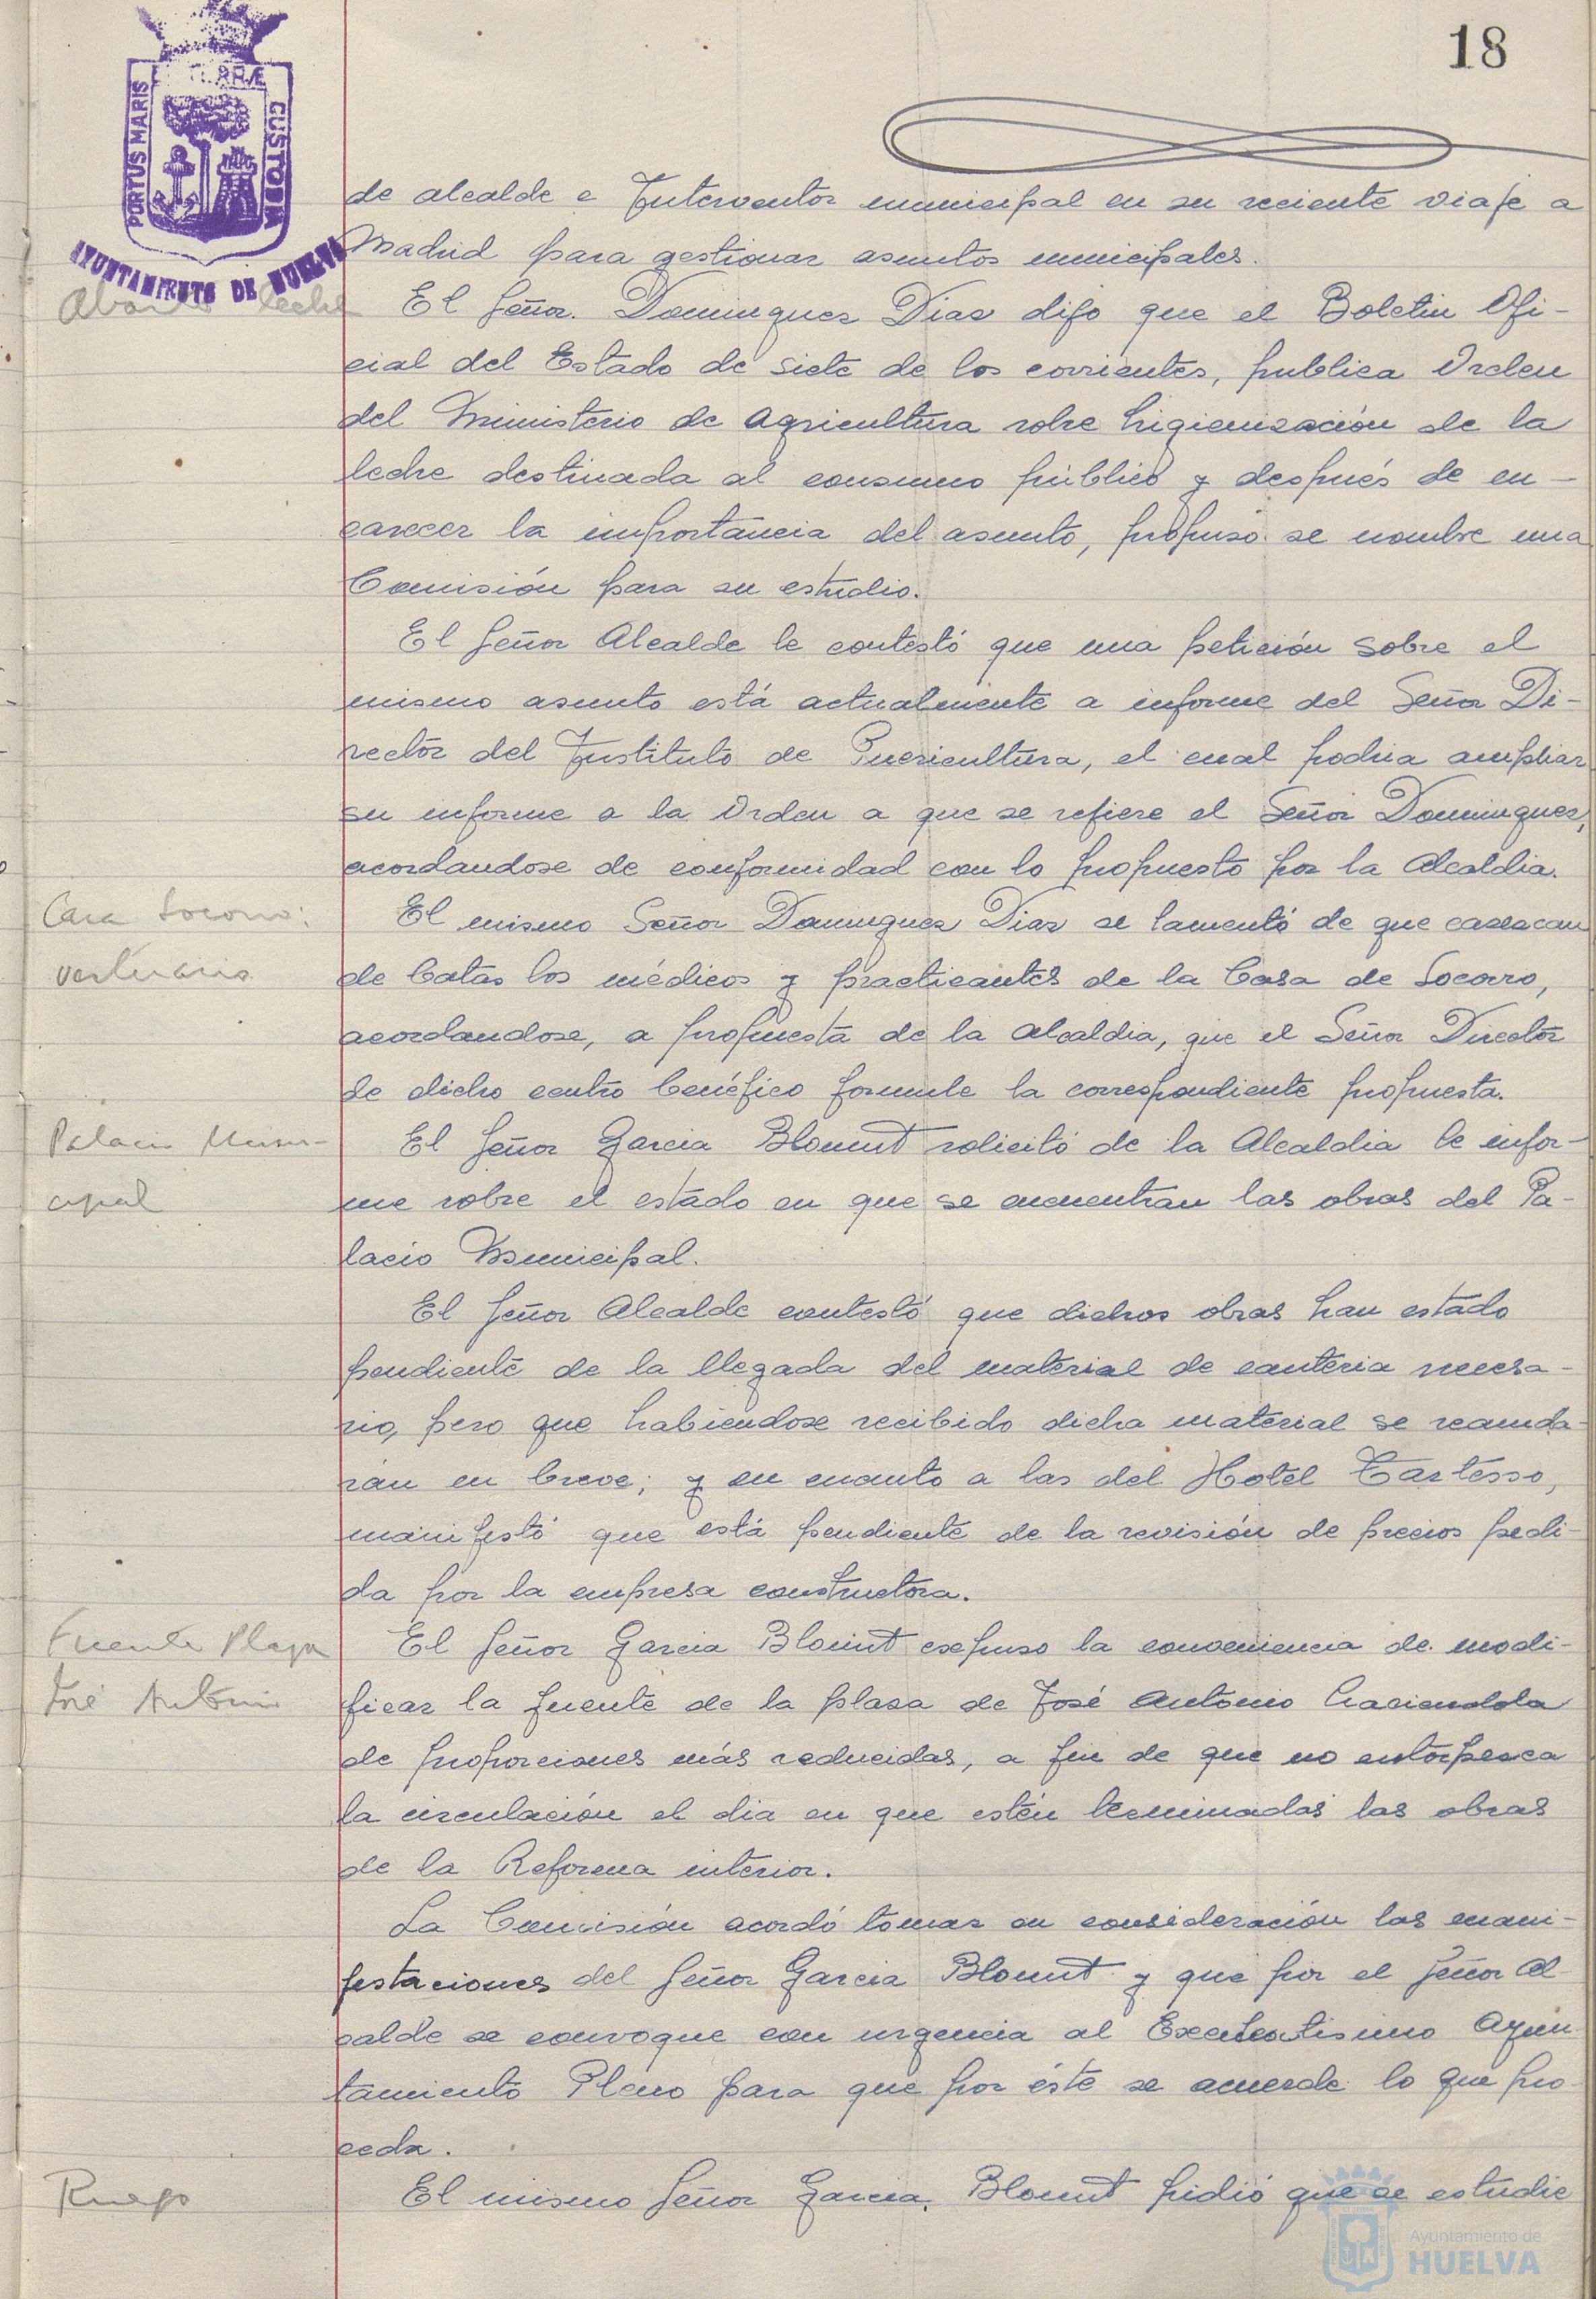 18
TERRÆ
PORTUS MARIS
CUSTODIA
AYUNTAMIENTO DE HUELVA
de alcalde e Interventor municipal en su reciente viaje a
Madrid para gestionar asuntos municipales.
Abasto leche
El Señor. Dominguez Diaz dijo que el Boletin Ofi-
cial del Estado de siete de los corrientes, publica Orden
del Ministerio de Agricultura sobre higienización de la
leche destinada al consumo público y después de en-
carecer la importancia del asunto, propuso se nombre una
Comisión para su estudio.
El Señor Alcalde le contestó que una petición sobre el
mismo asunto está actualmente a informe del Señor Di-
rector del Instituto de Puericultura, el cual podria ampliar
su informe a la Orden a que se refiere el Señor Dominguez,
acordandose de conformidad con lo propuesto por la Alcaldia.
Casa Socorro:
vestuario
El mismo Señor Dominguez Diaz se lamentó de que carezcan
de batas los médicos y practicantes de la Casa de Socorro,
acordandose, a propuesta de la Alcaldia, que el Señor Director
de dicho centro benéfico formule la correspondiente propuesta.
Palacio Muni-
cipal
El Señor Garcia Blount solicitó de la Alcaldia le infor-
me sobre el estado en que se encuentran las obras del Pa-
lacio Municipal.
El Señor Alcalde contestó que dichas obras han estado
pendiente de la llegada del material de canteria necesa-
rio, pero que habiendose recibido dicha material se reanuda-
rán en breve; y en cuanto a las del Hotel Tartesso,
manifestó que está pendiente de la revisión de precios pedi-
da por la empresa constructora.
Fuente Plaza
José Antonio
El Señor Garcia Blount expuso la conveniencia de modi-
ficar la fuente de la plaza de José Antonio haciendola
de proporciones más reducidas, a fin de que no entorpezca
la circulación el dia en que estén terminadas las obras
de la Reforma interior.
La Comisión acordó tomar en consideración las mani-
festaciones del Señor Garcia Blount y que por el Señor Al-
calde se convoque con urgencia al Excelentisimo Ayun
tamiento Pleno para que por éste se acuerde lo que pro
ceda.
Ruego
El mismo Señor Garcia Blount pidió que se estudie
Ayuntamiento de
HUELVA